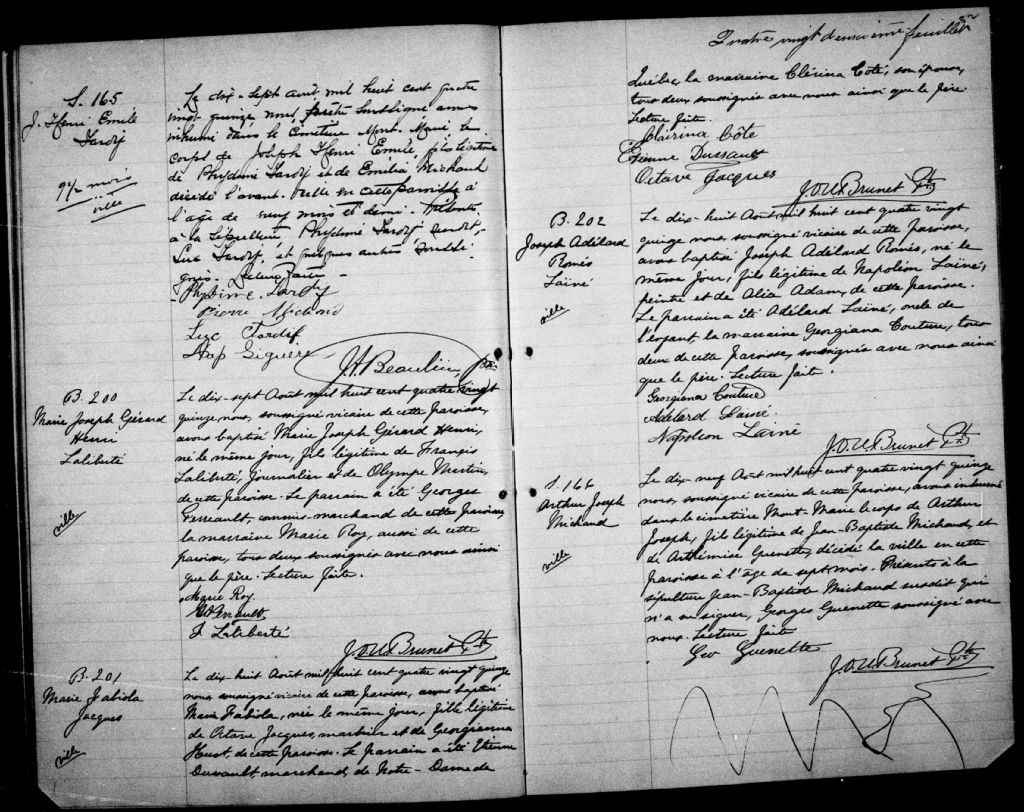 S. 165
J. Henri Emile
Tardif
9 1/2 mois
ville
Le dix-sept avril mil huit cent quatre
vingt quinze nous, prêtre soussigné avons
inhumé dans le Cimetière Mont-Marie le
corps de Joseph Henri Emile, fils légitime
de Phydime Tardif et de Emilia Michaud
décédé l'avant-veille en cette paroisse à
l'age de neuf mois et demi. Présents
à la sépulture Phydime Tardif
Luc Tardif, et quelques autres soussi-
gnés. Lecture faite.
Phydime Tardif
Pierre Michaud
Luc Tardif
Nap Siguere
J.A. Beaulieu, Ptre
B. 200
Marie Joseph Gérard
Henri
Laliberté
ville
Le dix-sept Août mil huit cent quatre vingt
quinze, nous, soussigné vicaire de cette paroisse,
avons baptisé Marie Joseph Gérard Henri,
né le même jour, fils légitime de François
Laliberté, journalier et de Olympe Martin,
de cette paroisse. Le parrain a été Georges
Perreault, commis-marchand de cette paroisse,
la marraine Marie Roy, aussi de cette
paroisse, tous deux soussignés avec nous ainsi
que le père. Lecture faite.
Marie Roy
G Perrault
F Laliberté
J.O.U. Brunet Ptre
B. 201
Marie Fabiola
Jacques
ville
Le dix huit Août mil huit cent quatre vingt quinze
nous soussigné vicaire de cette paroisse, avons baptisé
Marie Fabiola, née le même jour, fille légitime
de Octave Jacques, marbrier et de Georgianna
Huot, de cette paroisse. Le parrain a été Etienne
Dussault, marchand, de Notre-Dame de
Quatre vingt deuxième feuillet
82
Québec, la marraine Clérina Côté, son épouse,
tous deux soussignés avec nous ainsi que le père.
Lecture faite.
Clairina Côte
Etienne Dussault
Octave Jacques
J.O.U. Brunet Ptre
B. 202
Joseph Adélard
Roméo
Lainé
ville
Le dix-huit Août mil huit cent quatre vingt
quinze nous, soussigné vicaire de cette paroisse,
avons baptisé Joseph Adélard Roméo, né le
même jour, fils légitime de Napoléon Lainé,
peintre et de Alia Adam, de cette paroisse.
Le parrain a été Adélard Lainé, oncle de
l'enfant la marraine Georgiana Couture, tous
deux de cette paroisse, soussignés avec nous ainsi
que le père. Lecture faite.
Georgiana Couture
Adélard Lainé.
Napoléon Lainé
J.O.U. Brunet Ptre
S. 166
Arthur Joseph
Michaud
ville
Le dix-neuf Août mil huit cent quatre vingt quinze
nous, soussigné vicaire de cette paroisse, avons inhumé
dans le cimetière Mont-Marie le corps de Arthur
Joseph, fils légitime de Jean-Baptiste Michaud, et
de Arthémise Guenette, décédé la veille en cette
paroisse à l'âge de sept mois. Présents à la
sépulture Jean-Baptiste Michaud susdit qui
n'a su signer, Georges Guenette soussigné avec
nous. Lecture faite
Geo Guenette
J.O.U. Brunet Ptre